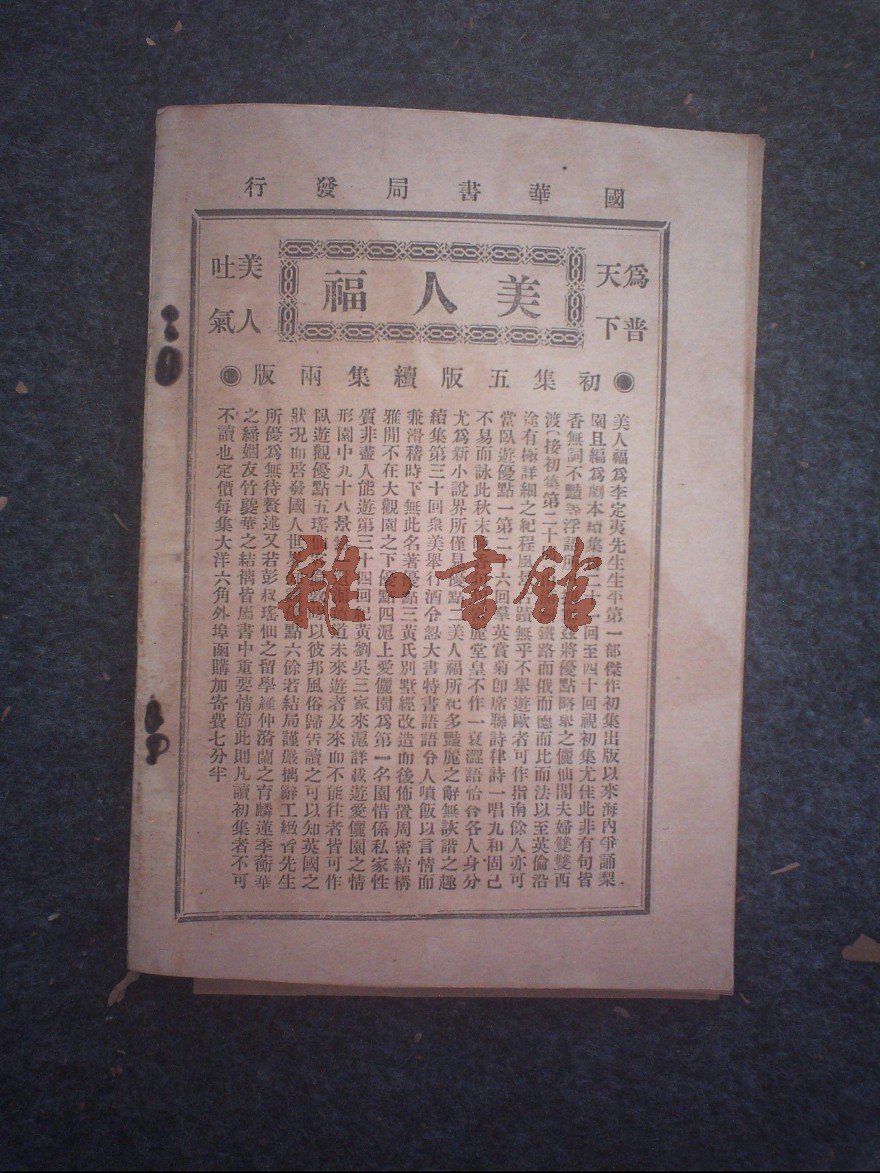 國華書局發行
爲普天下
美人福
美人吐氣
◉初集五版續集兩版◉
美人福爲李定夷先生生平第一部傑作初集出版以來海內爭誦梨
園且編爲劇本續集二十一回至四十回視初集尤佳此非有句皆
香無詞不豔等浮語所 將優點略舉之儷仙閣夫婦雙雙西
渡(接初集第二十 鐵路而俄而應而比而法以至英倫沿
途有極詳細之紀程風景 蹟無乎不舉遊歐者可作指南餘人亦可
當臥遊優點一第二十六回羣英賞菊卽席聯詩律詩一唱九和固已
不易而詠此秋末 麗堂皇不作一衰澀語恰合各人身分
尤爲新小說界所僅見優點二美人福所記多豔麗之辭無詼諧之趣
續集第三十回衆美舉行酒令忽大書特書語語令人噴飯以言情而
兼滑稽時下無此名著優點三黃氏別墅經改造而後佈置周密結構
雅閒不在大觀園之下優點四滬上愛儷園爲第一名園惜係私家性
質非盡人能遊第三十四回記黃劉吳三家來滬詳載遊愛儷園之情
形園中九十八景 道未來遊者及來而不能往者皆可作
臥遊觀優點五瑤仙 以彼邦風俗歸告讀之可以知英國之
狀況而啓發國人世界 點六餘若結局謹嚴摛辭工緻皆先生
所優爲無待贅述又若彭叔瑤仙之留學羅仲漪蘭之育麟蓮季蘅華
之締姻友竹襲華之結褵皆屬書中重要情節此則凡讀初集者不可
不讀也定價每集大洋六角外埠函購加寄費七分半
雜·書館